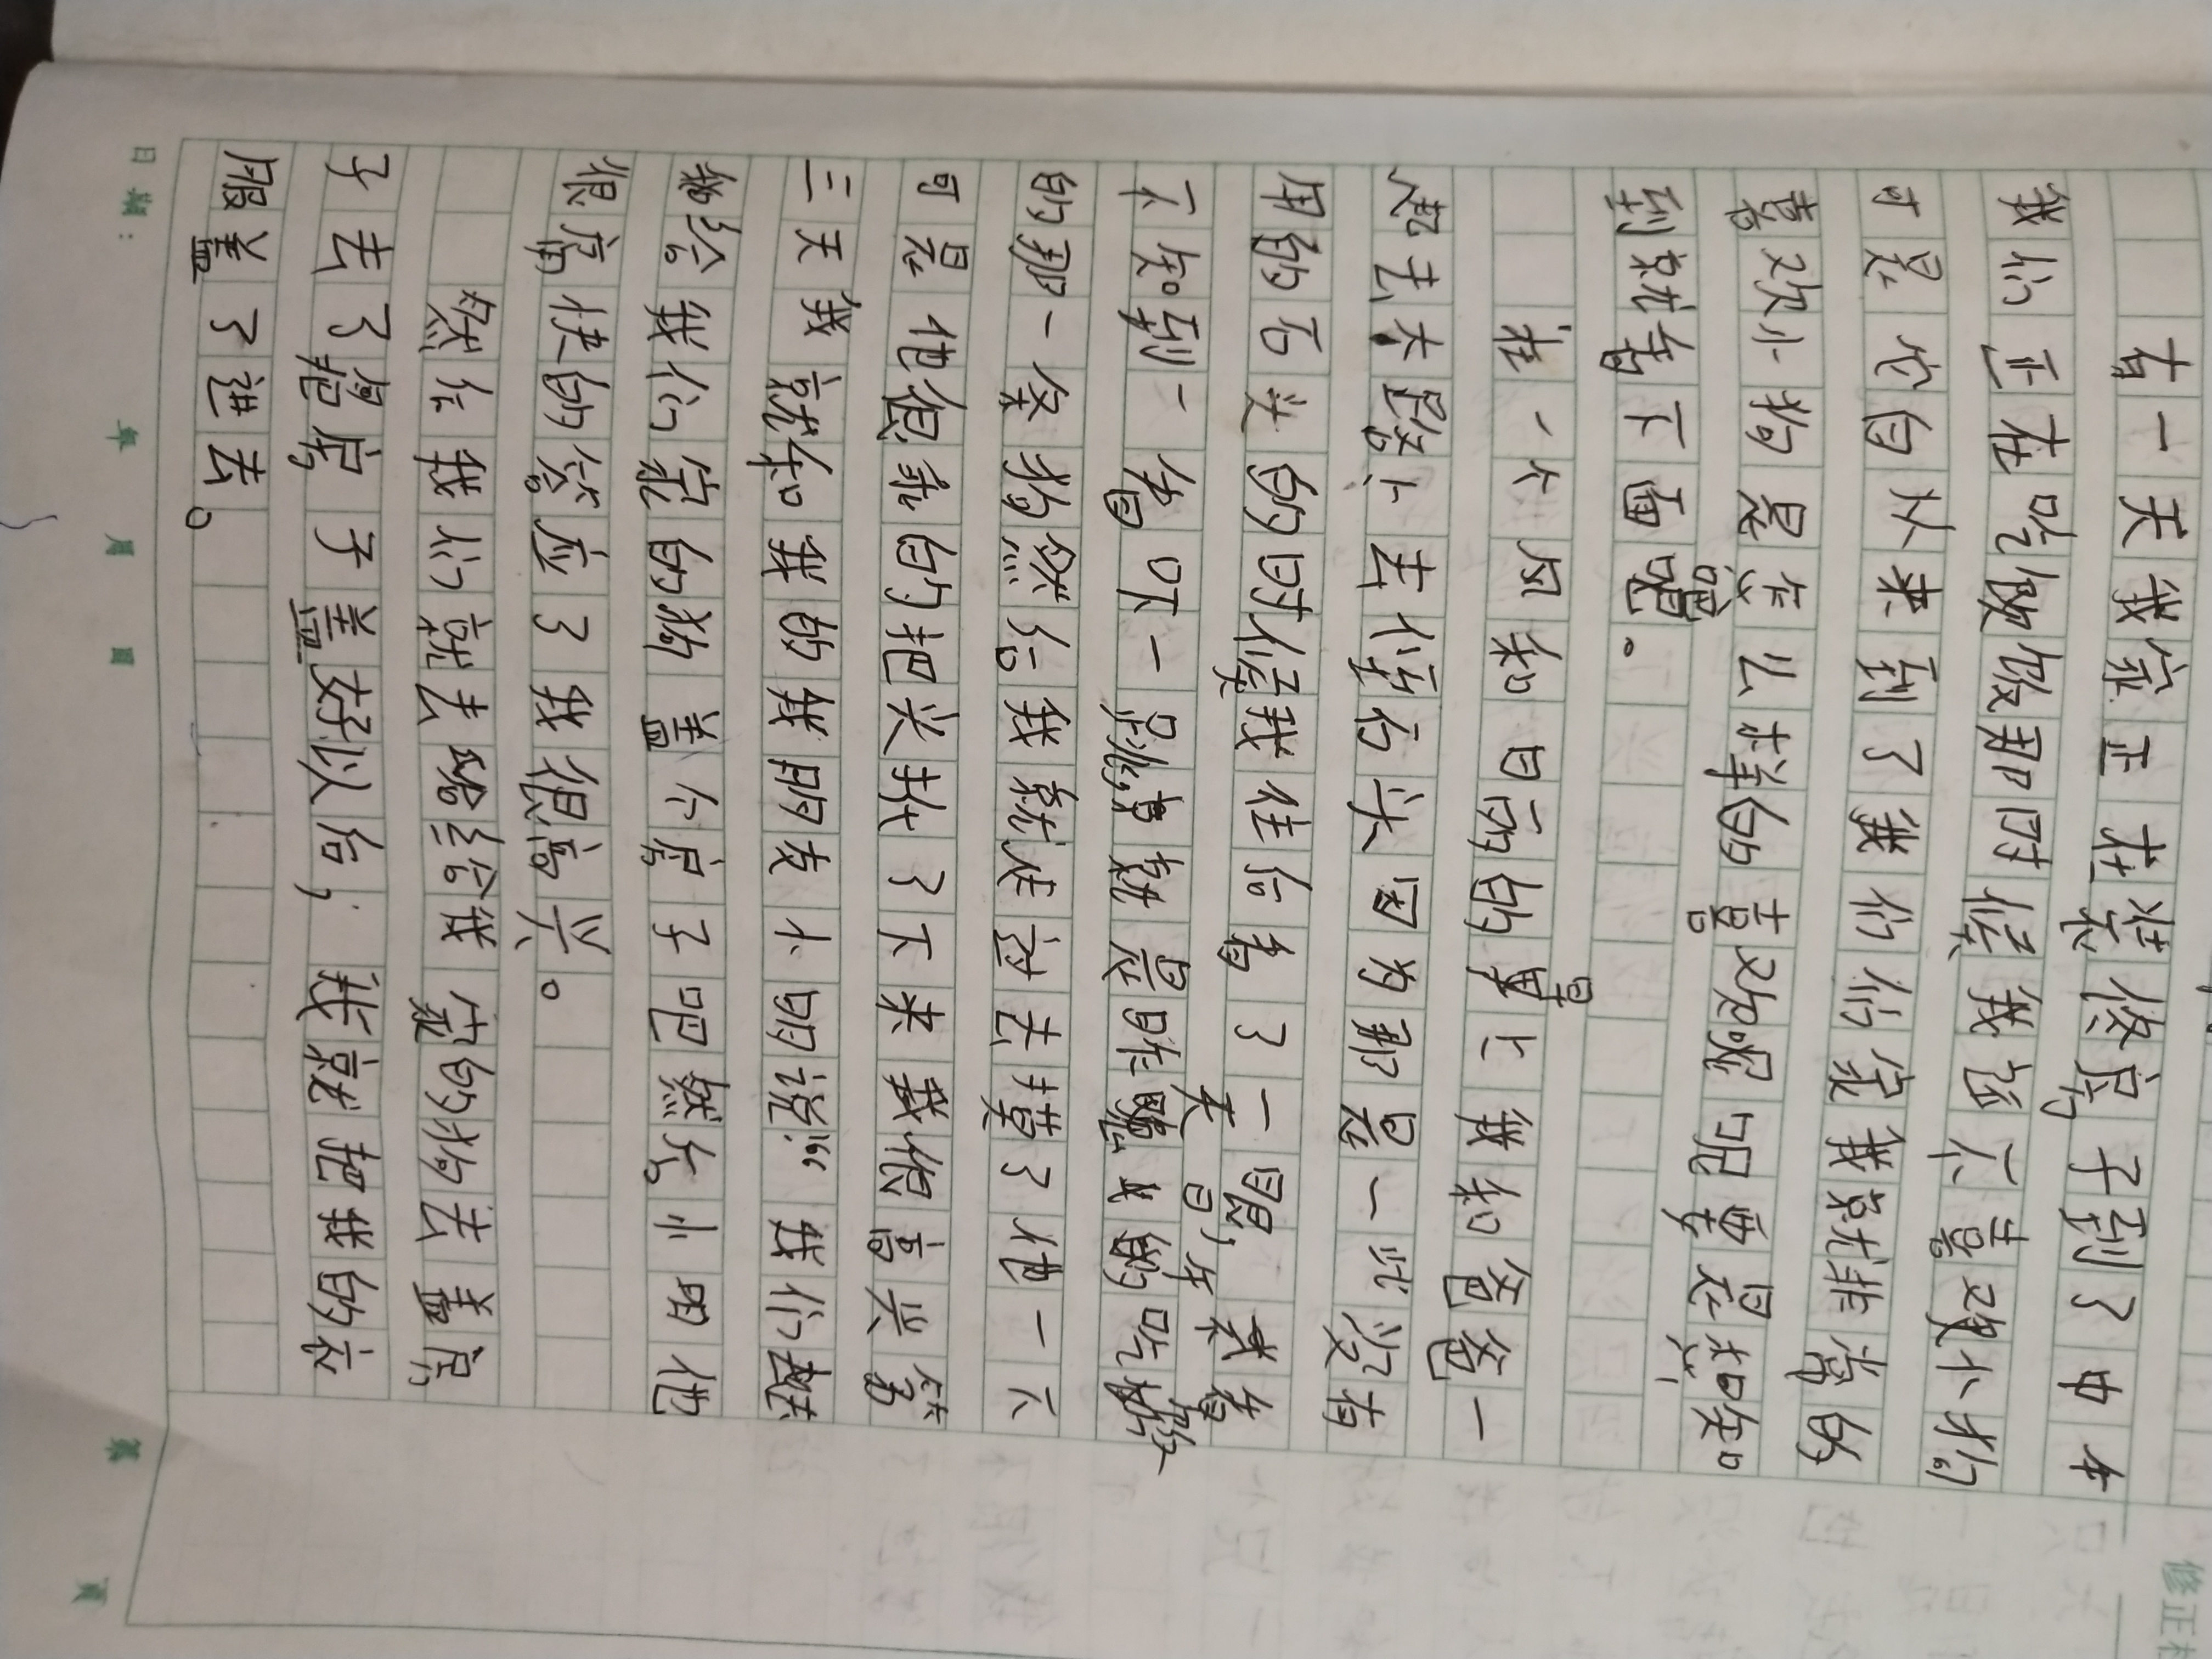 有一天我家正在装修房子到了中午
我们正在吃饭饭那时候我还不喜欢小狗
可是它自从来到了我们们家我就非常的
喜欢小狗是怎么样的喜欢呢要是想知
到就看下面吧。
在一个风和日丽的早上我和爸爸一
起去大路上去传石头因为那是一些没有
用的石头的时候我往后看了一眼
不知到一看吓一跳竟然是昨天
的那一条狗然后我就走过去摸了他一下
可是他很乖的把头扭了下来我很高兴第
三天我就和我的我朋友小明说:"我们赶
给我们家的狗盖个房子吧然后小明他
很爽快的答应了我很高兴。
然后我们就去给我家的狗去盖房
子去了房子盖好以后,我就把我的衣
服盖了进去。
日期:
年 月 日
第 页
修正